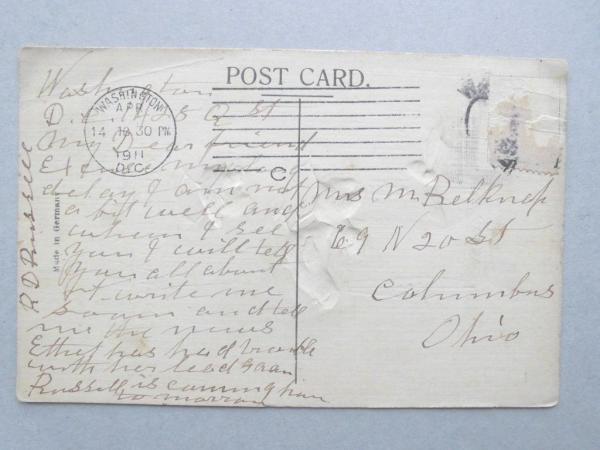 POST CARD.
WASHINGTON
APR
14 10 30 PM
1911
D.C.
C
Washington
D. C. 1425 Q St
My Dear friend
Excuse my long
delay I am not
a bit well and
when I see
you I will tell
you all about
it write me
soon and tell
me the news
Ethel has had trouble
with her head
Russell is comming
to morrow
R D Russell
Made in Germany
Mrs M Belknap
69 N 20 St
Columbus
Ohio